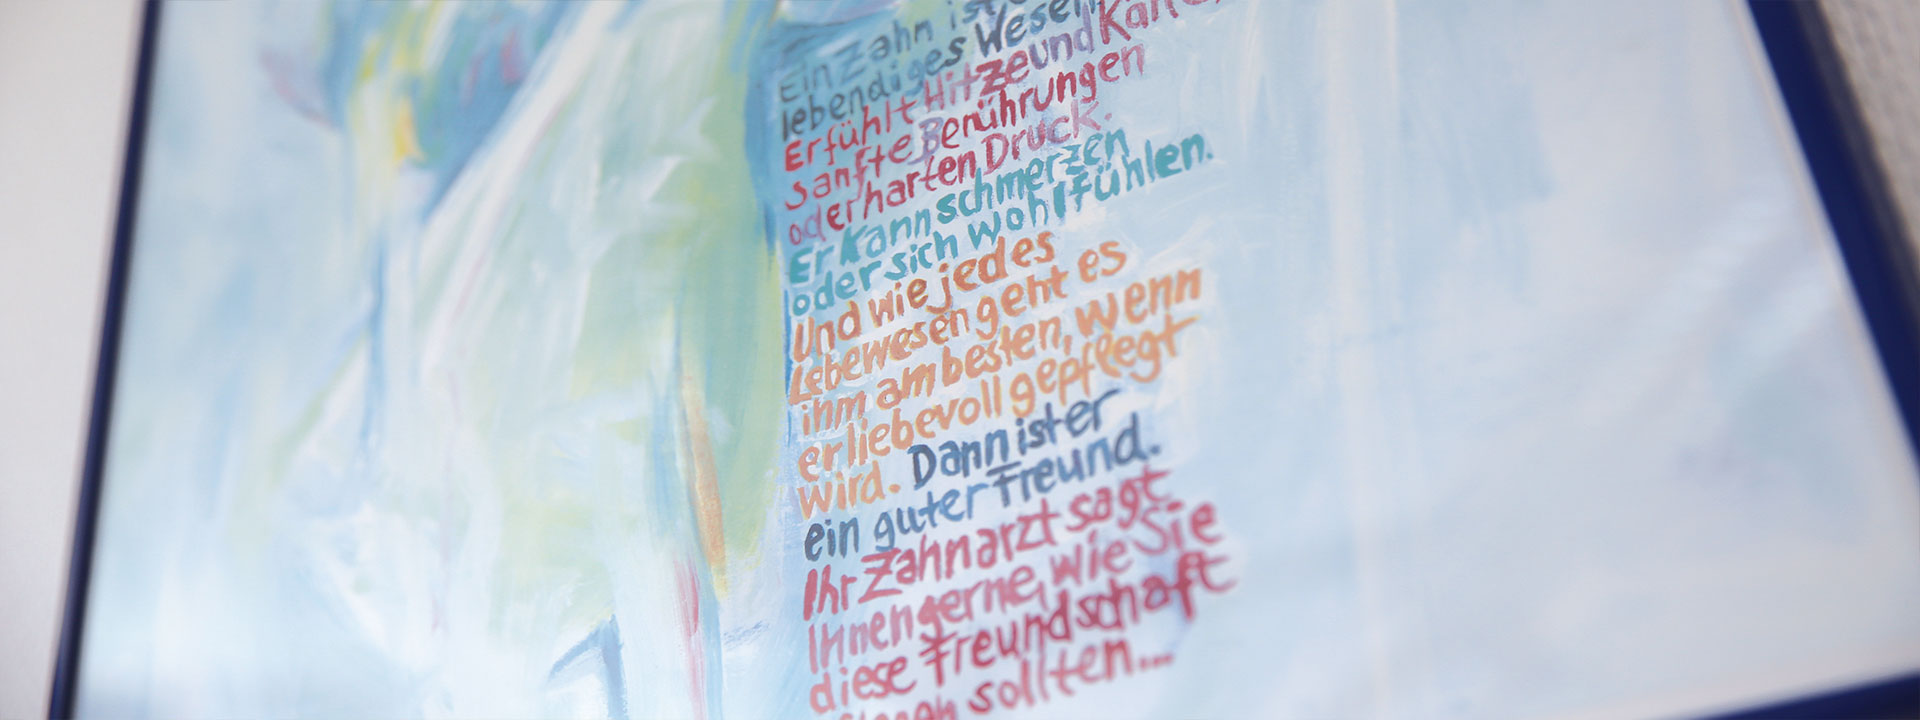 Ein Zahn ist
lebendiges Wesen
Er fühlt Hitze und Kälte,
sanfte Berührungen
oder harten Druck.
Er kann schmerzen
oder sich wohlfühlen.
Und wie jedes
Lebewesen geht es
ihm am besten, wenn
er liebevoll gepflegt
wird. Dann ist er
ein guter Freund.
Ihr Zahnarzt sagt
Ihnen gerne, wie Sie
diese Freundschaft
pflegen sollten...